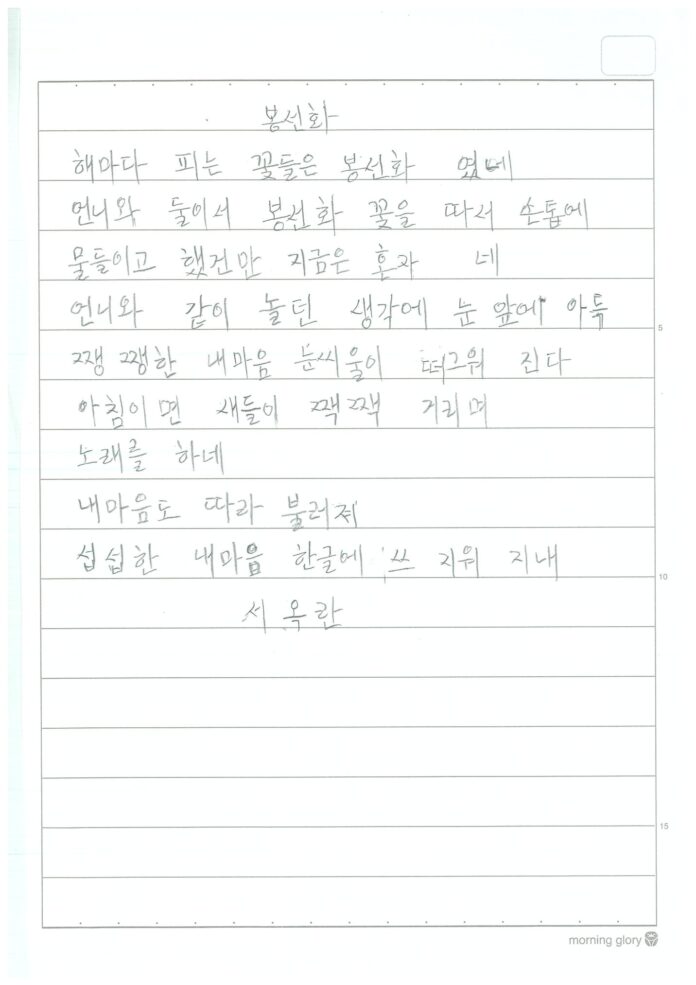 봉선화
해마다 피는 꽃들은 봉선화 였네
언니와 둘이서 봉선화 꽃을 따서 손톱에
물들이고 했건만 지금은 혼자 네
언니와 같이 놀던 생각에 눈 앞에 아득
쨍쨍한 내마음 눈씨울이 떠그워 진다
아침이면 새들이 짹짹 거리며
노래를 하네
내마음도 따라 불러져
섭섭한 내마음 한글에 쓰 지워 지내
서옥란
5
10
15
morning glory